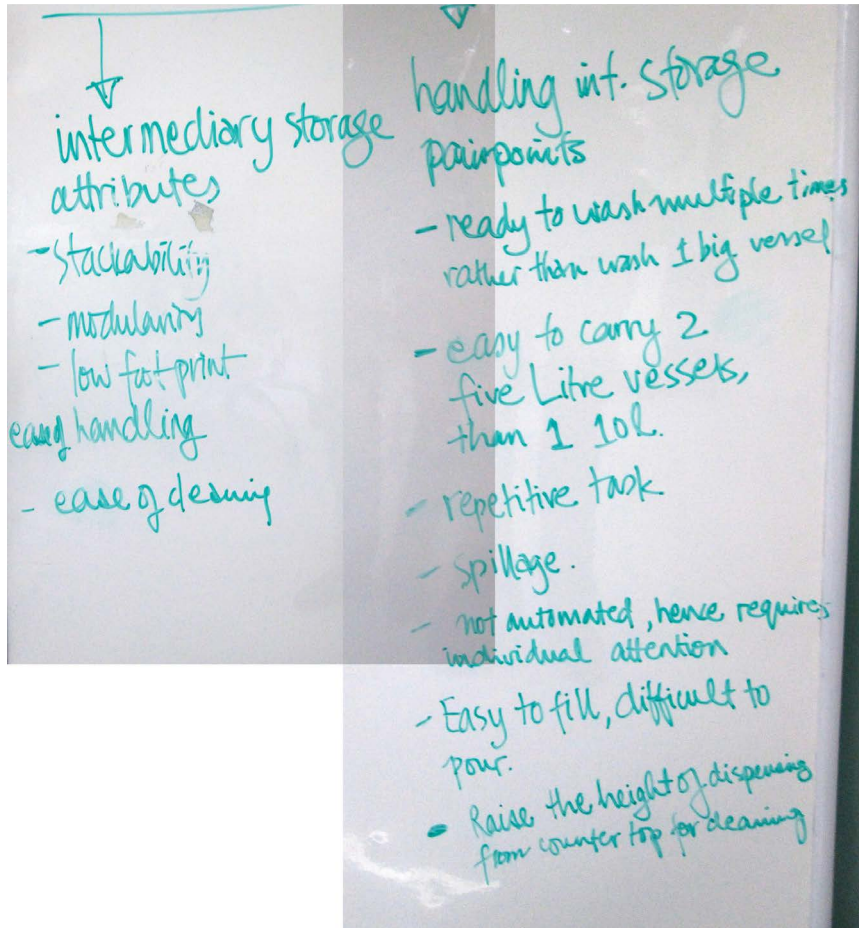 intermediary storage
attributes
- stackability
- modularity
- low footprint
easy handling
- ease of cleaning
handling int. storage
painpoints
- ready to wash multiple times
rather than wash 1 big vessel
- easy to carry 2
five Litre vessels,
than 1 10l.
- repetitive task
- spillage.
- not automated, hence requires
individual attention
- Easy to fill, difficult to
pour.
- Raise the height of dispensing
from counter top for cleaning